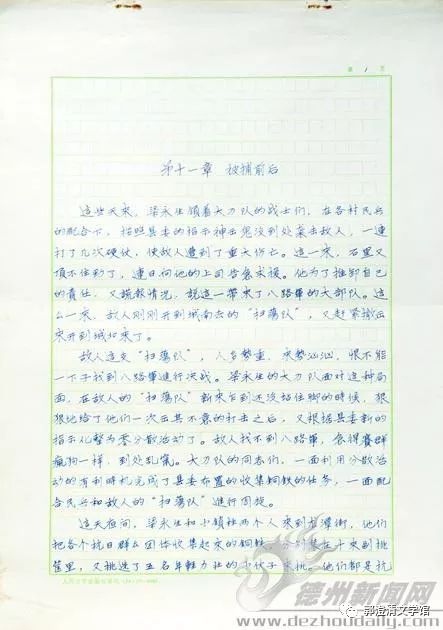 第 1 页
第十一章 被捕前后
这些天来，梁永生领着大刀队的战士们，在各村民兵
的配合下，按照县委的指示神出鬼没到处袭击敌人，一连
打了几次硬仗，使敌人遭到了重大伤亡。这一来，石黑又
顶不住劲了，连日向他的上司告急求援。他为了推卸自己
的责任，又谎报情况，说这一带来了八路军的大部队。这
么一来，敌人刚刚开到城南去的“扫荡队”，又赶紧撤出
来开到城北来了。
敌人这支“扫荡队”，人多势重，来势汹汹，恨不能
一下子找到八路军进行决战。梁永生的大刀队面对这种局
面，在敌人的“扫荡队”新来乍到还没站住脚的时候，狠
狠地给了他们一次出其不意的打击之后，又根据县委新的
指示化整为零分散活动了。敌人找不到八路军，急得赛群
疯狗一样，到处乱窜。大刀队的同志们，一面利用分散活
动的有利时机完成了县委布置的收集铜铁的任务，一面配
合民兵和敌人的“扫荡队”进行周旋。
这天夜间，梁永生和小锁柱两个人来到龙潭街，他们
把各个抗日群众团体收集起来的铜铁，分别装在十来副挑
筐里，又挑选了五名年轻力壮的小伙子来挑。他们都是抗
人民文学出版社稿纸
德州新闻网
www.dezhoudaily.com
郭澄清文学馆